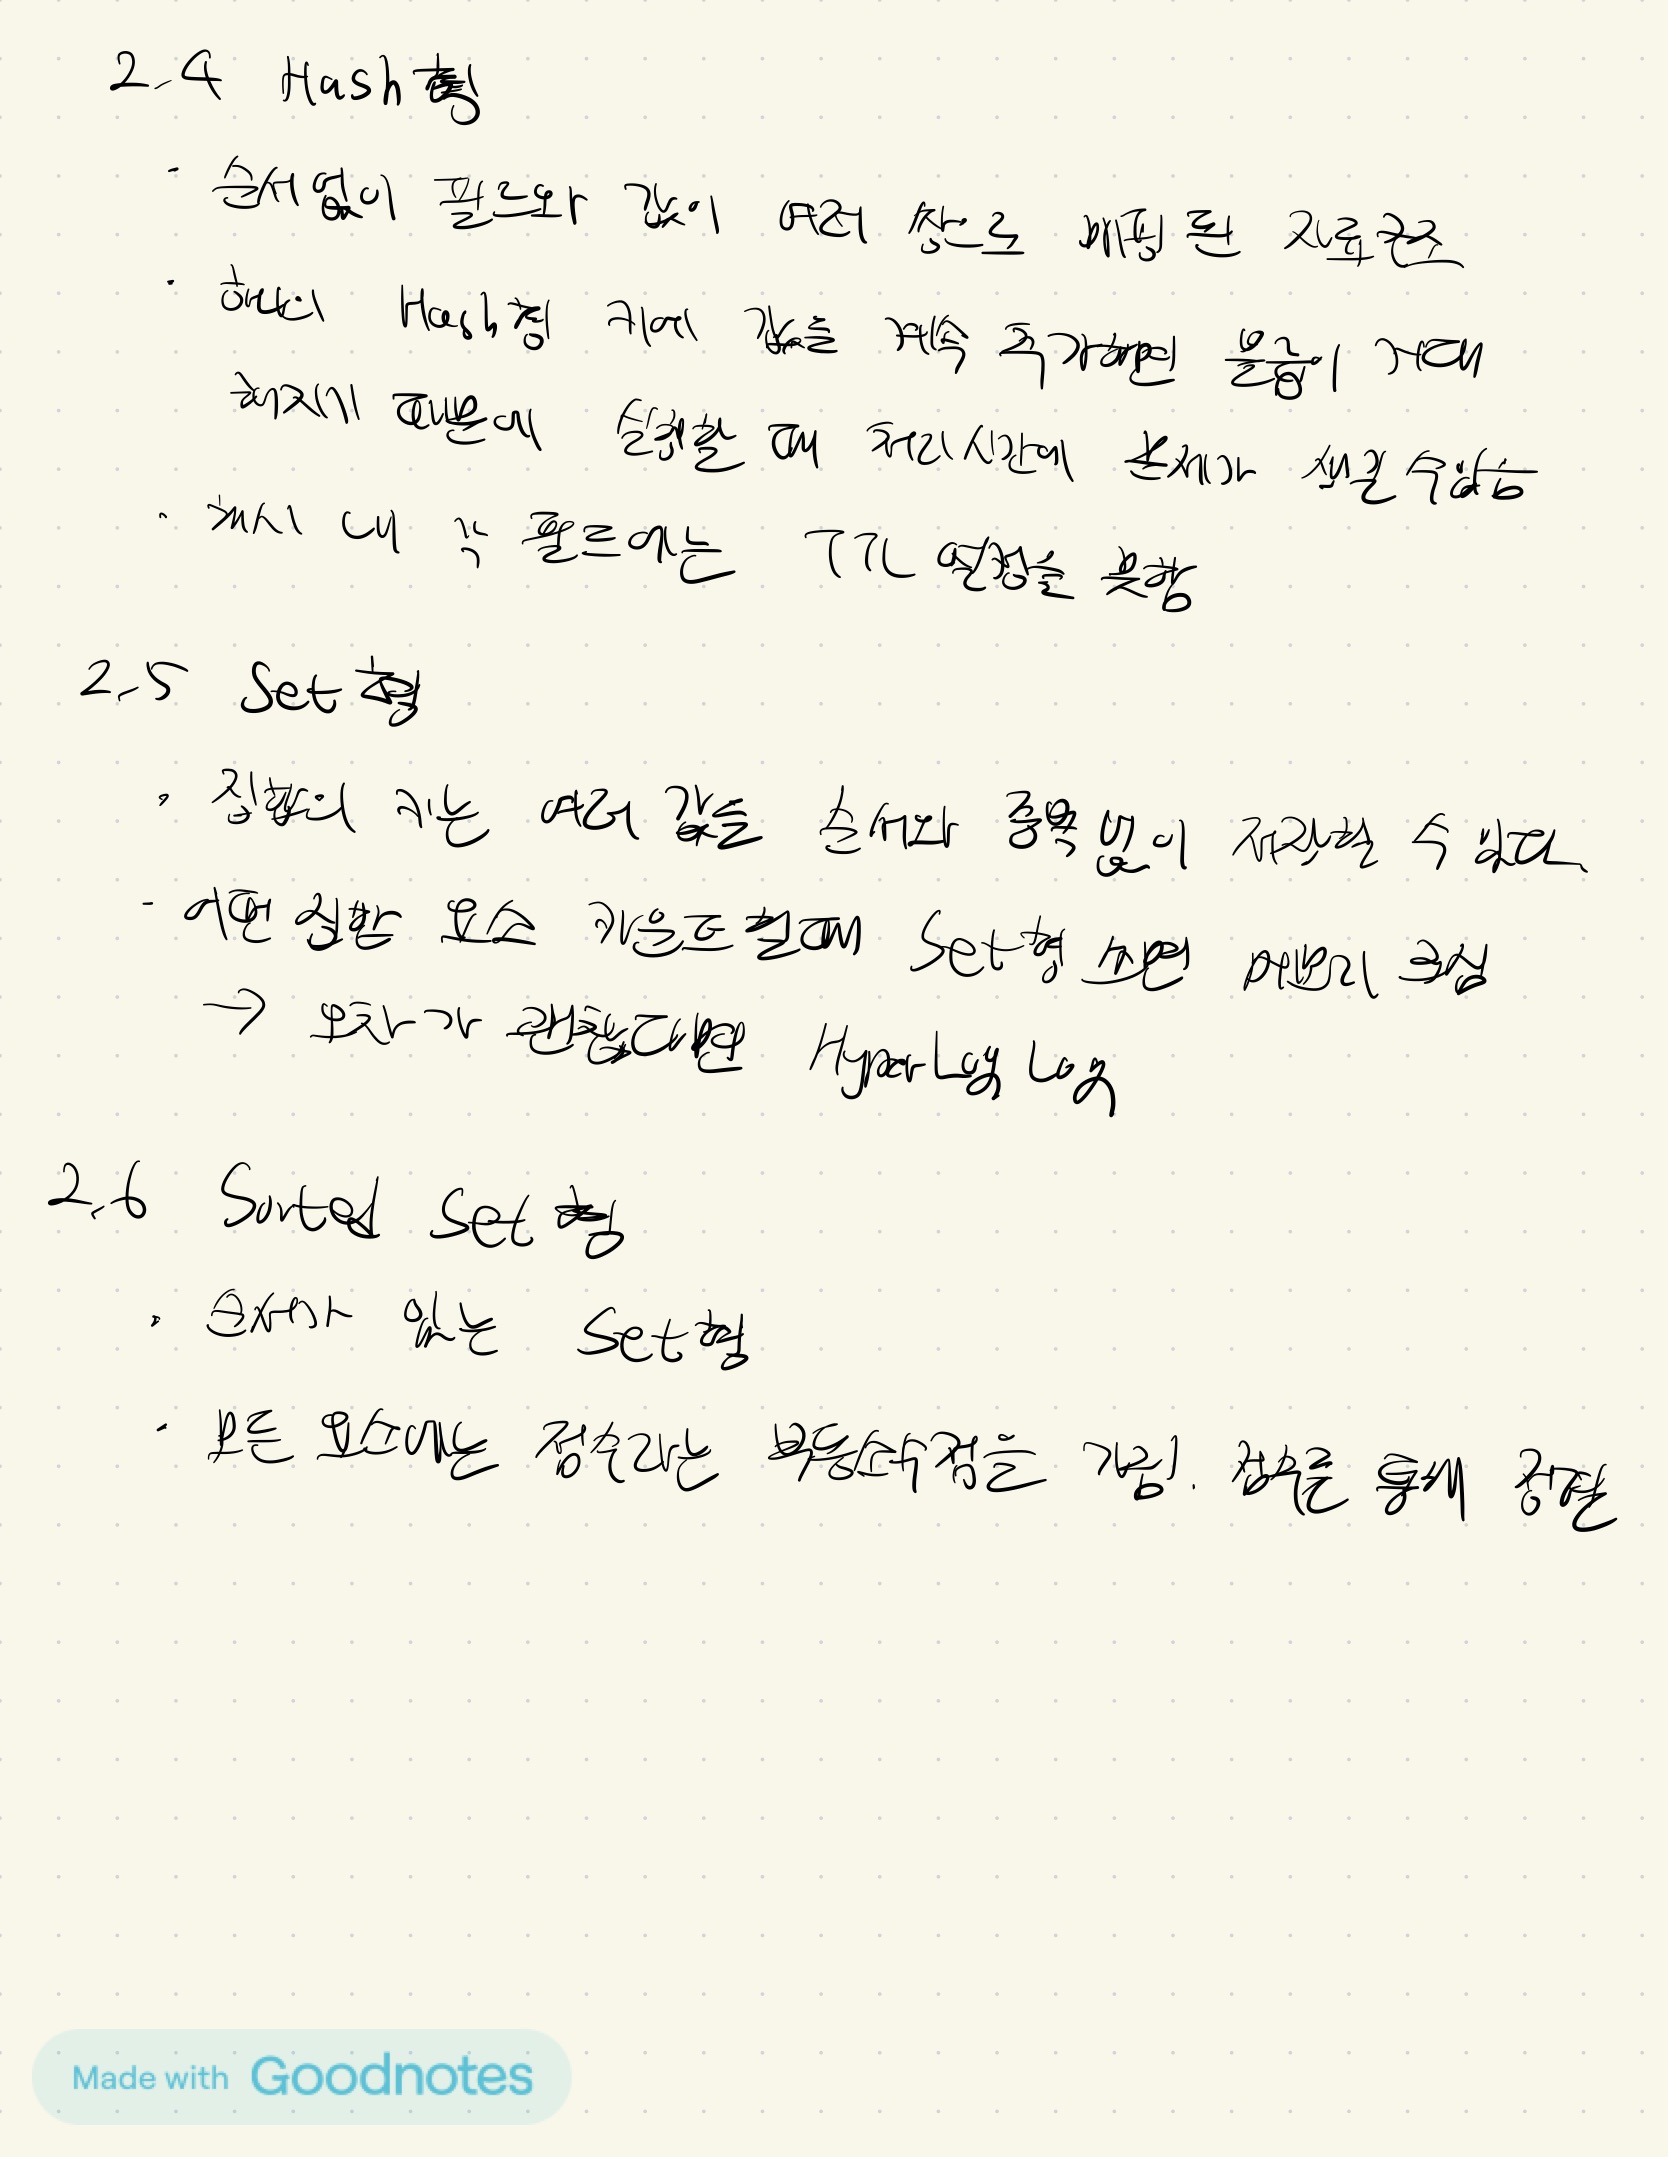 2.4 Hash형
· 순서 없이 필드와 값이 여러 쌍으로 매핑 된 자료구조
· 하나의 Hash형 키에 값을 계속 추가하면 몸집이 거대
해지기 때문에 실행할 때 처리시간에 문제가 생길 수 있음
· 해시 내 각 필드에는 TTL 설정을 못함
2.5 Set형
· 집합의 키는 여러 값을 순서와 중복 없이 저장할 수 있다.
- 어떤 집합 요소 카운트 할때 Set형 쓰면 메모리 크심
→ 오차가 괜찮다면 HyperLogLog
2.6 Sorted Set형
· 순서가 있는 Set형
· 모든 요소에는 점수라는 부동소수점을 가짐. 점수를 통해 정렬
Made with Goodnotes